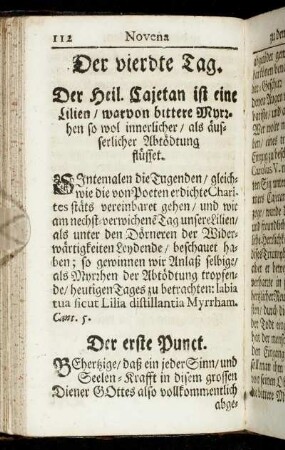 112 Novena
Der vierdte Tag.
Der Heil. Cajetan ist eine
Lilien / warvon bittere Myrr-
hen so wol innerlicher / als äus-
serlicher Abtödtung
flüsset.
SIntemalen die Tugenden / gleich-
wie die von Poeten erdichte Chari-
tes stäts vereinbaret gehen / und wir
am nechst-verwichene Tag unsere Lilien /
als unter den Dörneren der Wider-
wärtigkeiten Leydende / beschauet ha-
ben; so gewinnen wir Anlaß selbige /
als Myrrhen der Abtödtung tropfen-
de / heutigen Tages zu betrachten: labia
tua sicut Lilia distillantia Myrrham.
Cant. 5.
Der erste Punct.
BEhertzige / daß ein jeder Sinn / und
Seelen-Krafft in disem grossen
Diener GOttes also vollkommentlich
abge-